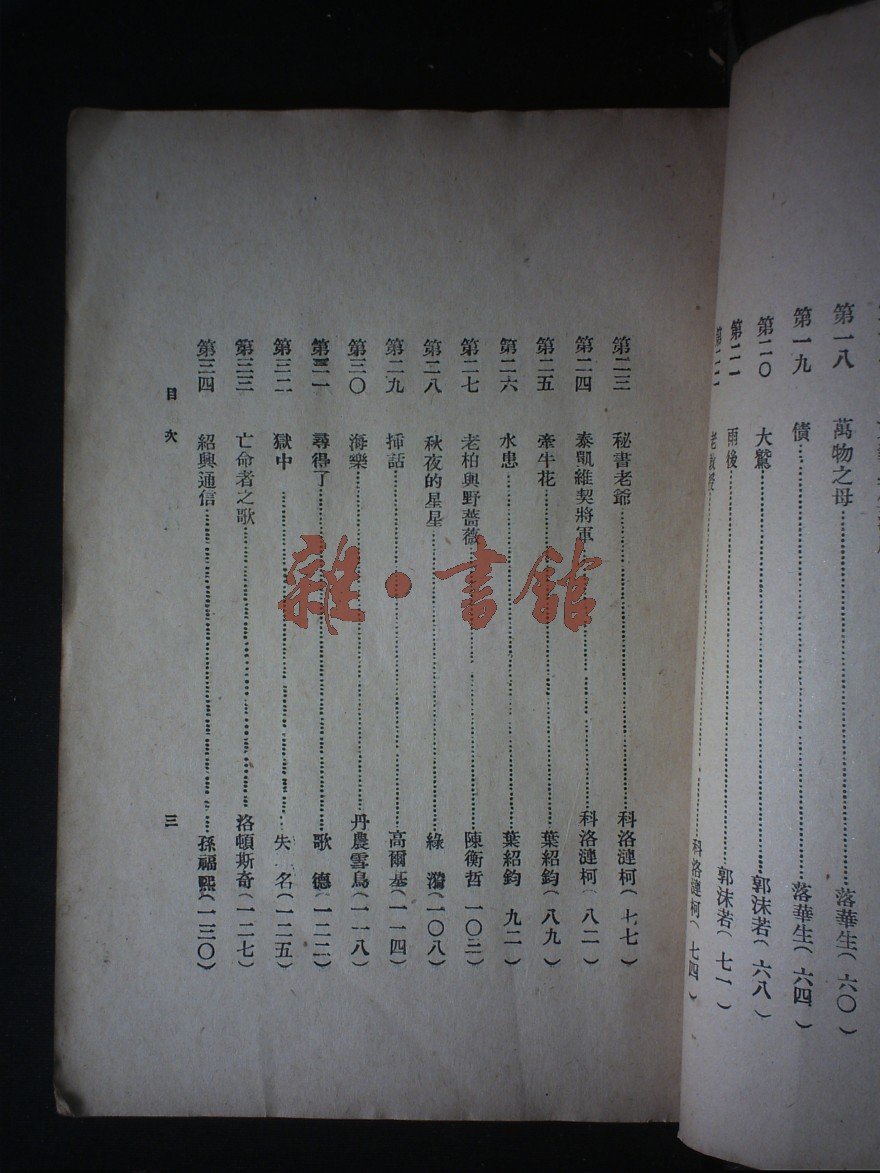 第一八　萬物之母……落華生（六〇）
第一九　債……落華生（六四）
第二〇　大鷲……郭沫若（六八）
第二一　雨後……郭沫若（七一）
第二二　老教授……科洛漣柯（七四）
第二三　秘書老爺……科洛漣柯（七七）
第二四　泰凱維契將軍……科洛漣柯（八二）
第二五　牽牛花……葉紹鈞（八九）
第二六　水患……葉紹鈞　九二）
第二七　老柏與野薔薇……陳衡哲　一〇三）
第二八　秋夜的星星……綠漪（一〇八）
第二九　揷話……高爾基（一一四）
第三〇　海樂……丹農雪烏（一一八）
第三一　尋得了……歌德（一二二）
第三二　獄中……失名（一二五）
第三三　亡命者之歌……洛頓斯奇（一二七）
第三四　紹興通信……孫福熙（一三〇）
目次
三
雜·書館